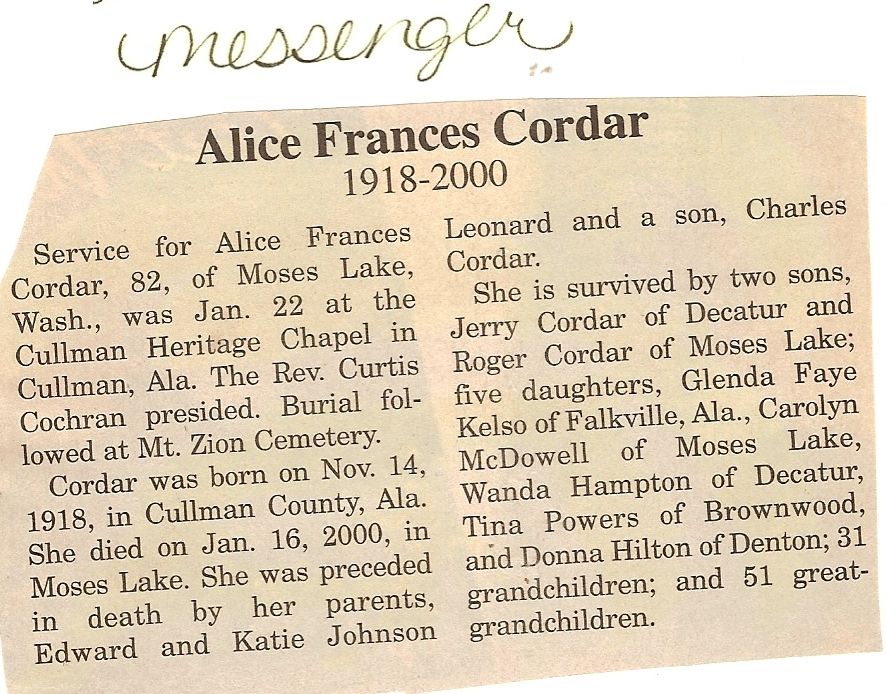 messenger
Alice Frances Cordar
1918-2000
Service for Alice Frances
Cordar, 82, of Moses Lake,
Wash., was Jan. 22 at the
Cullman Heritage Chapel in
Cullman, Ala. The Rev. Curtis
Cochran presided. Burial fol-
lowed at Mt. Zion Cemetery.
Cordar was born on Nov. 14,
1918, in Cullman County, Ala.
She died on Jan. 16, 2000, in
Moses Lake. She was preceded
in death by her parents,
Edward and Katie Johnson
Leonard and a son, Charles
Cordar.
She is survived by two sons,
Jerry Cordar of Decatur and
Roger Cordar of Moses Lake;
five daughters, Glenda Faye
Kelso of Falkville, Ala., Carolyn
McDowell of Moses Lake,
Wanda Hampton of Decatur,
Tina Powers of Brownwood,
and Donna Hilton of Denton; 31
grandchildren; and 51 great-
grandchildren.